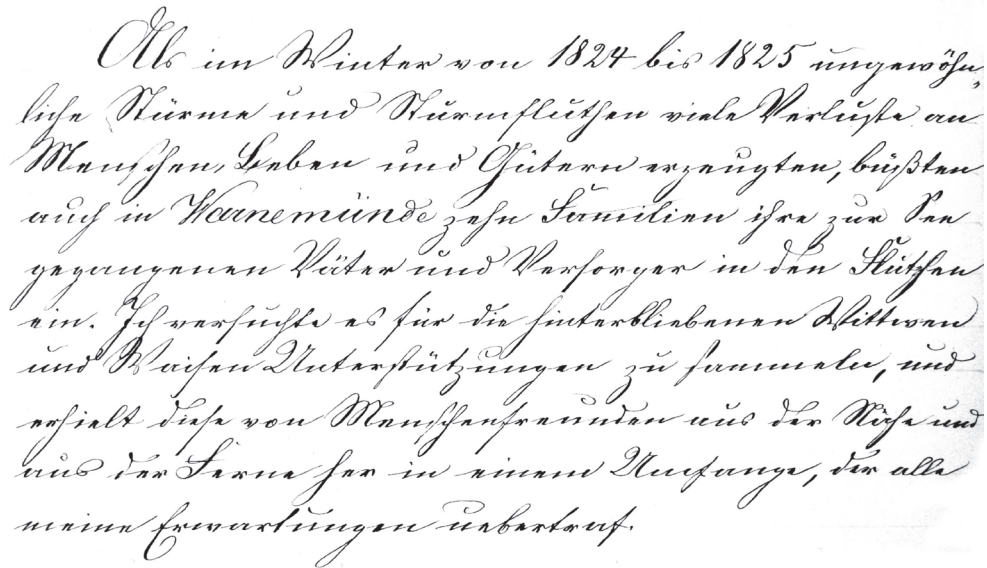 Als im Winter von 1824 bis 1825 ungewöhn-
liche Stürme und Sturmfluthen viele Verluste an
Menschen, Leben und Gütern erzeugten, büßten
auch in Warnemünde zehn Familien ihre zur See
gegangenen Väter und Versorger in den Fluthen
ein. Ich versuchte es für die hinterbliebenen Wittwen
und Waisen Unterstützungen zu sammeln, und
erhielt diese von Menschenfreunden aus der Nähe und
aus der Ferne her in einem Umfange, der alle
meine Erwartungen uebertraf.